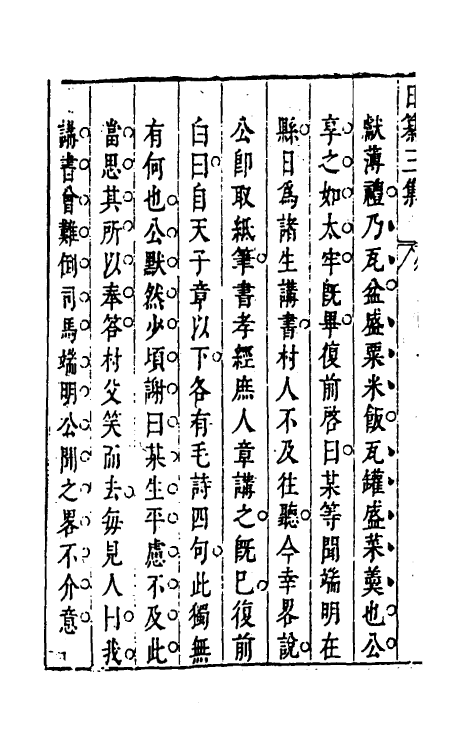 日纂三集
獻薄禮乃瓦盆盛粟米飯瓦罐盛菜羹也公
享之如太牢既畢復前啓曰某等聞端明在
縣日爲諸生講書村人不及往聽今幸畧說
公卽取紙筆書孝經庶人章講之既已復前
白曰自天子章以下各有毛詩四句此獨無
有何也公默然少頃謝曰某生平慮不及此
當思其所以奉答村父笑而去每見人曰我
講書曾難倒司馬端明公聞之畧不介意